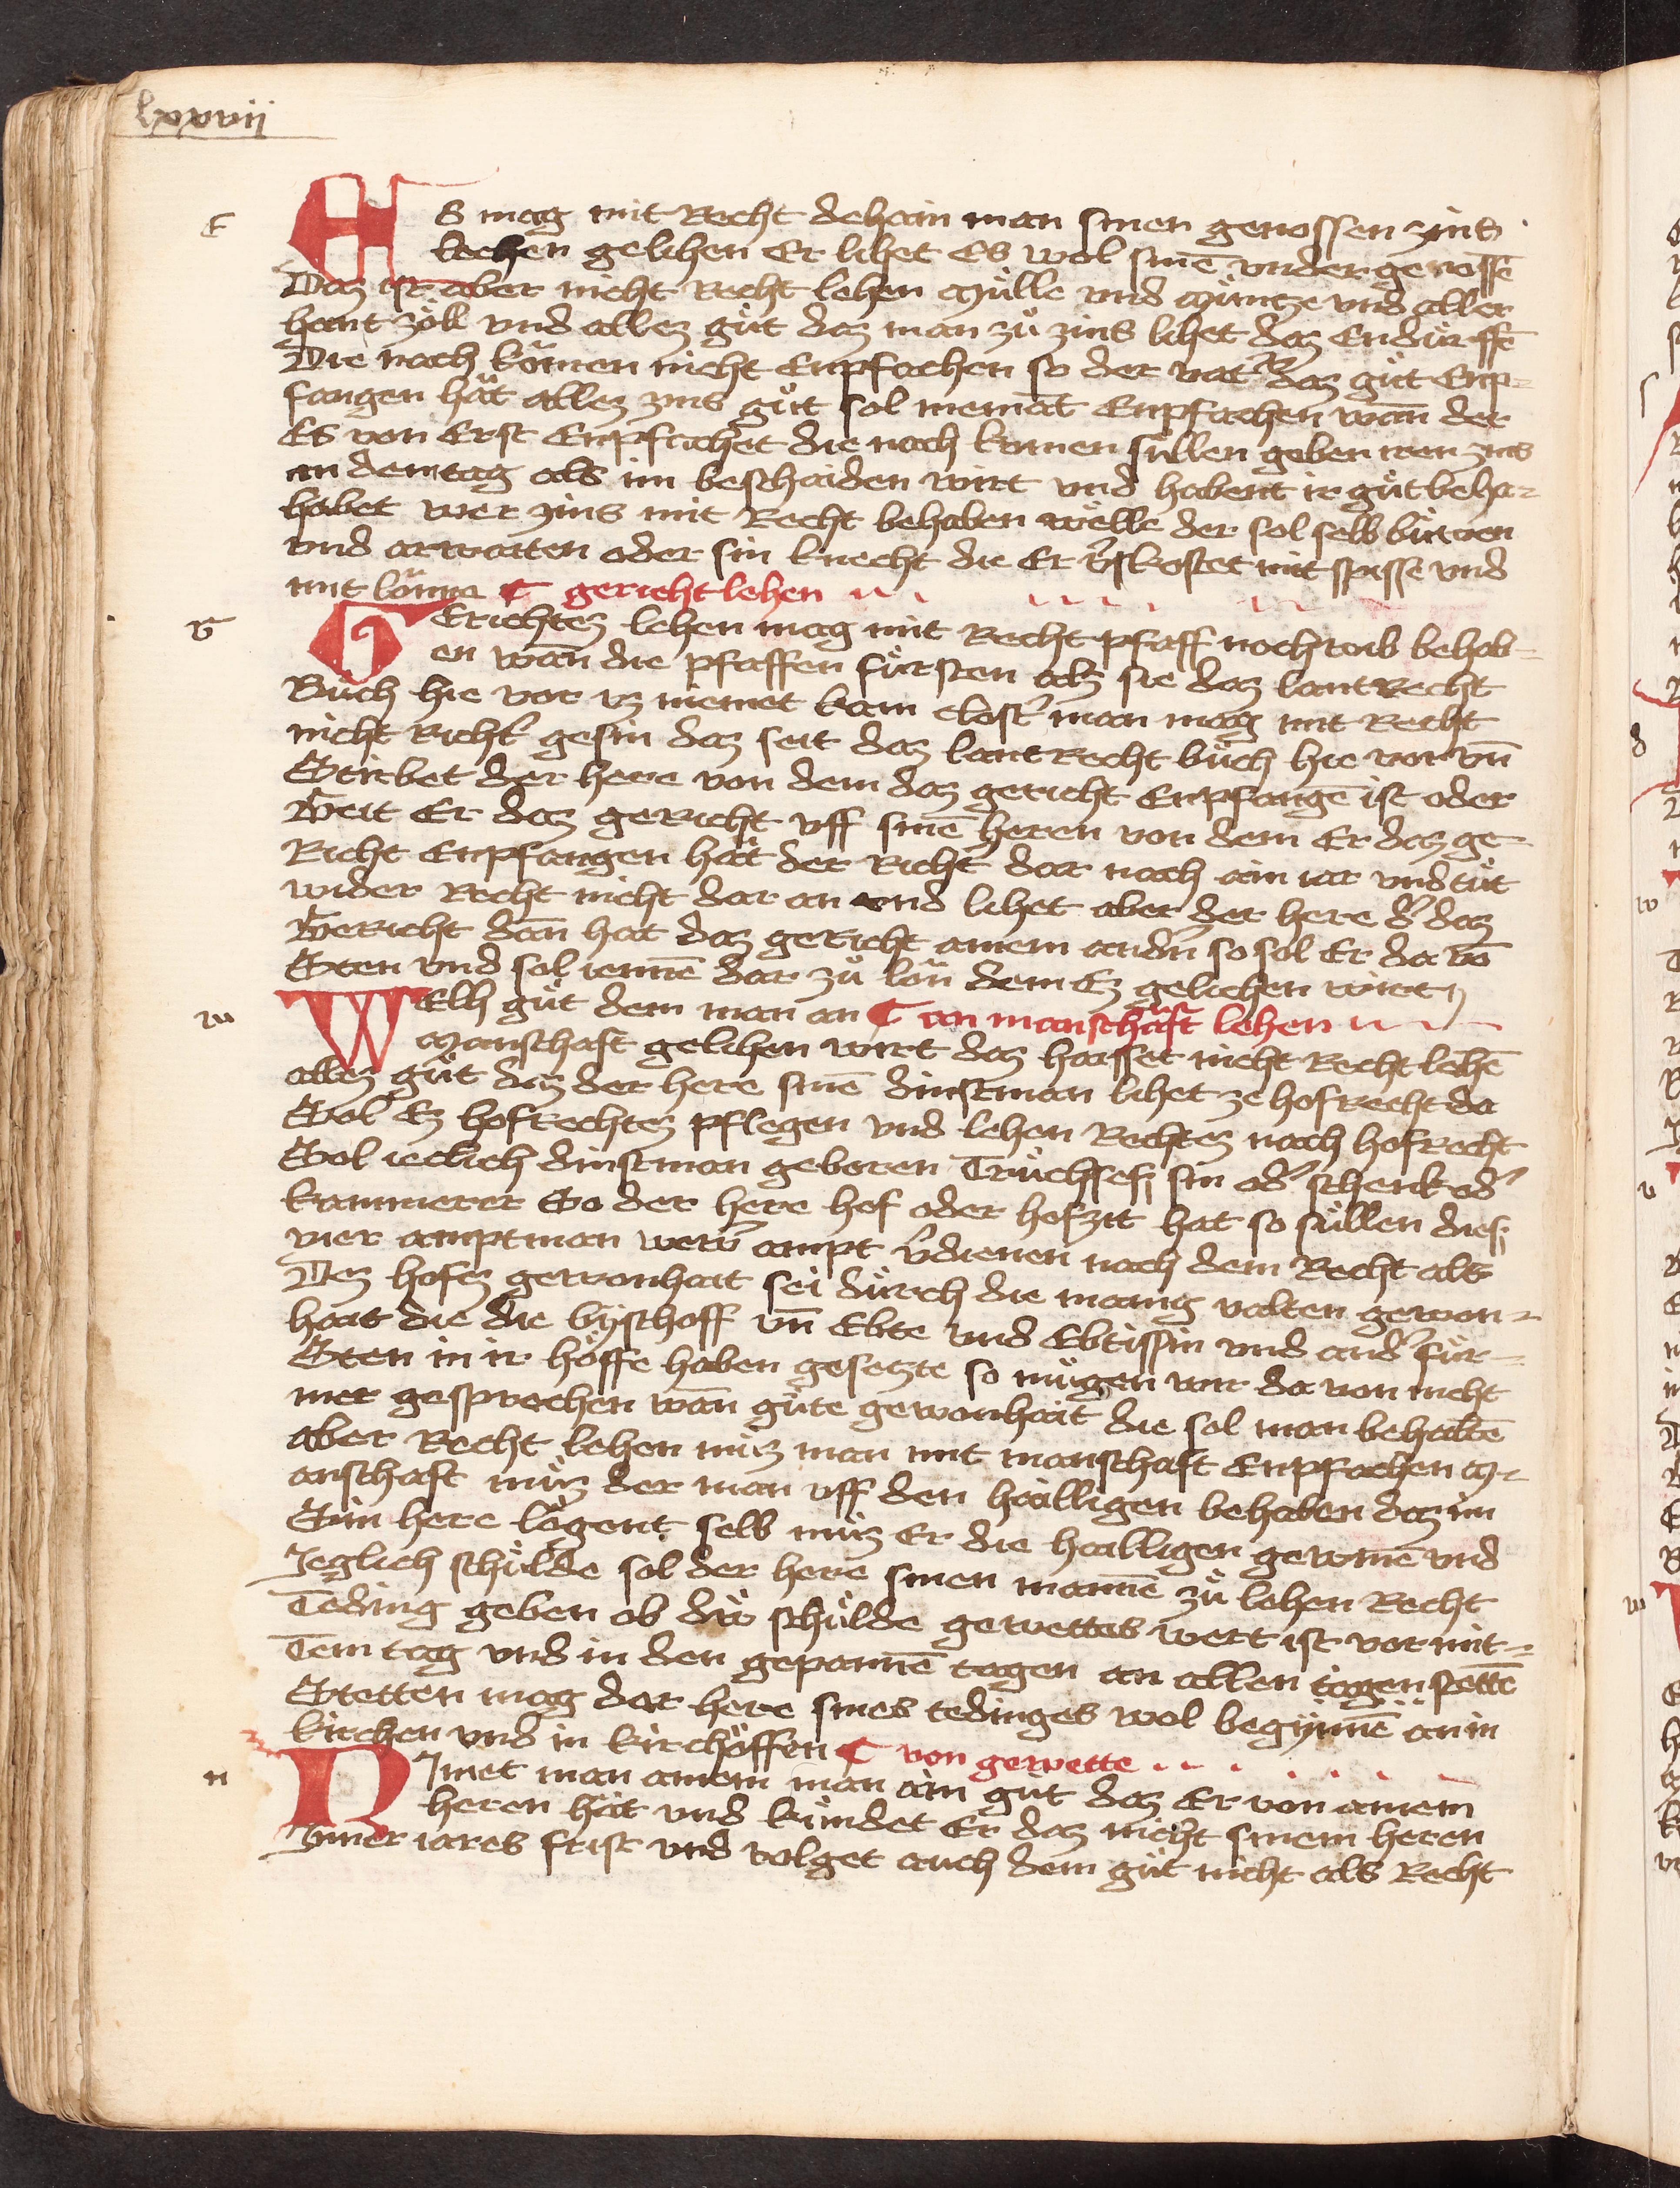 lxxxviij
Es mag mit Recht dehain man sinen genossen zins
lechen gelihen Er lihet Es wol sinē vnder genossē
Daz ist aber nicht Recht lehen Mu̍lle vnd Mu̍ntze vnd aller
hant zöll vnd allez gu̍t daz man zu̍ zins lihet daz Endu̍rffē
Die nach kömen nicht Enpfachen so der vatʼ daz gu̍t Enp-
fangen hǎt allez zins gu̍t sol niemāt Enpfachen wan̄ der
Es von Erst Enpfachet die nach komen su̍llen geben iren zins
an dem tag als im beschaiden wirt vnd habent ir gu̍t beha-
habet wer zins mit Recht behaben wölle der sol selb bu̍wen
vnd arwaiten oder sin knecht die Er vʼskostet mit spisse vnd
mit lönne ¶ gericht lehen
GErichtez lehen mag mit Recht pfaff noch wib behab-
en wan̄ die pfaffen fu̍rsten alz sie daz lantRecht
Bu̍ch hie vor vz niemet kain clostʼ man mag mit Recht
nicht Richtʼ gesin daz seit daz lantRecht bu̍ch hie vor vn̄
Stirbet der here von dem daz gericht Enpfangē ist oder
Geit Er daz geRicht vff sinē heren von dem Er daz ge-
Richt Enpfangen hǎt der Richtʼ dar nach ain iar vnd tu̍t
wider Recht nicht dar an vnd lihet aber der here dʼ daz
Gericht dan̄ hat daz geRicht ainem andʼn so sol Er da vō
Sten vnd sol iennē dar zu̍ lon̄ dem Ez gelichen wirt
WElh gu̍t dem man an ¶ von manschaft lehen
Manschaft gelihen wirt daz haisset nicht Recht lehē
allez gu̍t daz der here sinē dinstman lihet ze hofRecht da
Sol Ez hofRechtez pflegen vnd lehen Rechtez nach hofRecht
Sol ieclich dinstman geboren Tru̍chsess sin odʼ schenk odʼ
kammerer So der here hof oder hofzit hat so su̍llen dies
vier amptman werū ampt vʼdienen nach dem Recht als
Dez hofez gewonhait sei du̍rch die manig valten gewon-
hait die die byschoff vn̄ Ebte vnd Ebtissin vnd andʼ fu̍r-
Sten in ir höffe haben gesetzte so mu̍gen wir da von nicht
mer gesprechen wan̄ gu̍te gewonhait die sol man behaltē
aber Recht lehen mu̍z man mit manschaft Enpfachen M-
anschaft mu̍z der man vff den hailligen behaben daz im
Sim here lögent selb mu̍z Er die hailligen gewinē vnd
Jeglich schu̍lde sol der here sinen mannē zu̍ lehen Recht
Teding geben ob du̍ schu̍lde gewettes wert ist vor mit-
Tem tag vnd in den gepannē tagen an allen tagen stettē
Stetten mag der here sines tedinges wol begynnē an in
kirchen vnd in kirchöffen ¶ von gewette
NJmet man ainem man ain gut daz Er von ainem
heren hǎt vnd ku̍ndet Er daz nicht sinem heren
Jnner iares frist vnd volget auch dem gu̍t nicht als Recht
E
G
w
n